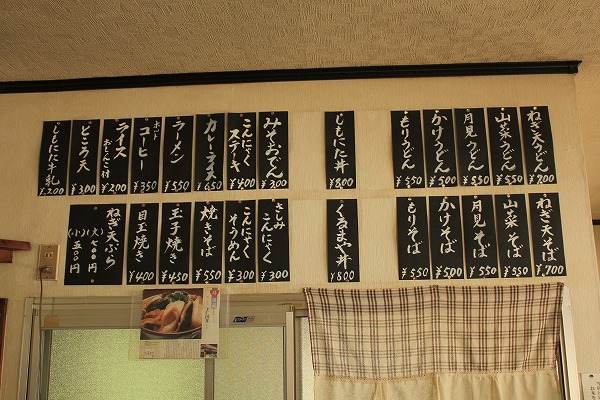 ねぎ天うどん
¥700
山菜うどん
¥550
月見うどん
¥550
かけうどん
¥500
もりうどん
¥550
しもにた丼
¥800
みそおでん
¥300
こんにゃく
ステーキ
¥400
カレーライス
¥650
ラーメン
¥550
ホット
コーヒー
¥350
ライス
おしんこ付
¥200
ところ天
¥300
しもにた牛乳
¥200
ねぎ天そば
¥700
山菜そば
¥550
月見そば
¥550
かけそば
¥500
もりそば
¥550
くるまや丼
¥800
さしみ
こんにゃく
¥300
こんにゃく
そうめん
¥300
焼きそば
¥550
玉子焼き
¥450
目玉焼き
¥400
ねぎ天ぷら
(大)七00円
(小)五00円